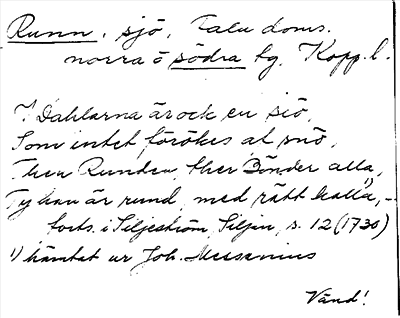 Runn, sjö, Falu doms.
norra o södra tg, Kopp. l.
I Dahlarna är ock en siö,
Som intet förökes af snö,
Then Runden, ther Bönder alla,
Ty han är rund, med rätt kalla¹⁾, –
forts. i Siljeström, Siljan, s. 12 (1730)
¹⁾ hämtat ur Joh. Messenius
Vänd!